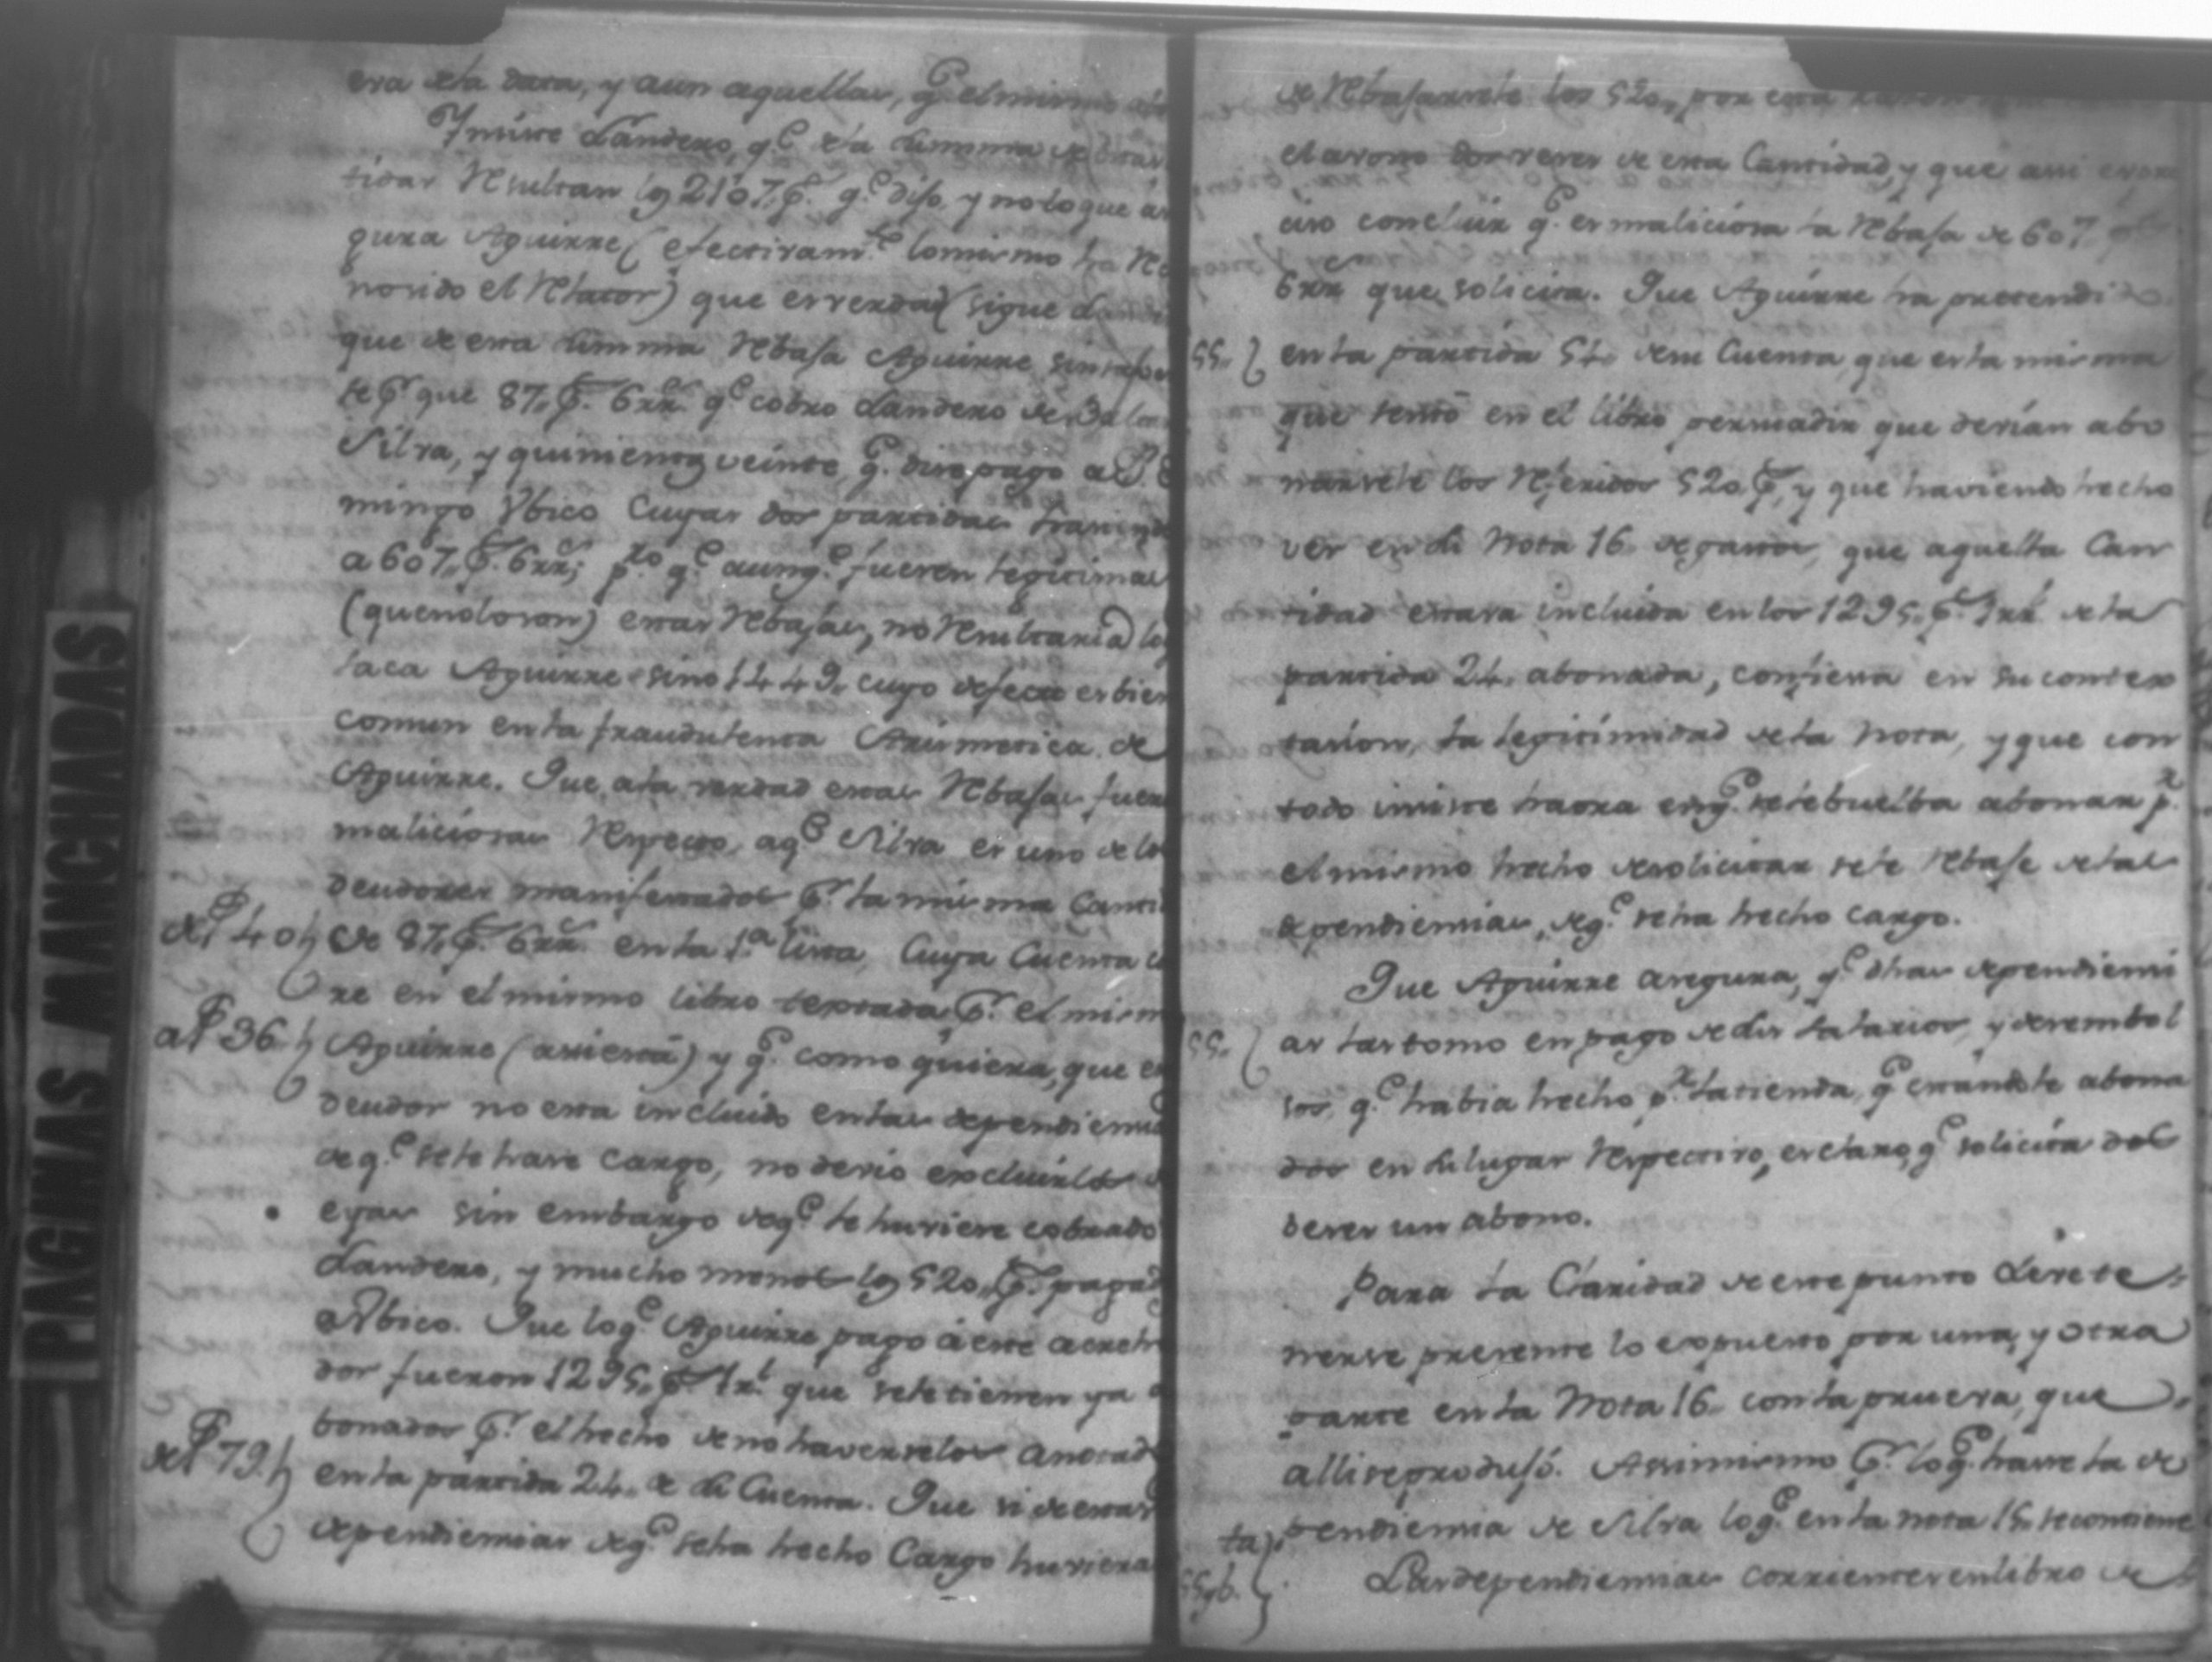 era de la data, y aun aquellas, qe. el mismo
Insiste Landero, qe. de la summa de estas
tidas resultan los 2107 ps. qe. dijo, y no lo que
gura Aguirre (efectivamte. lo mismo ha
nosido el Relator) que es verdad (sigue
que de esta summa rebaja Aguirre
87 ps. 6 rrs. qe. cobro Landero de
Silva, y quinientos veinte ps. dice pago a Dn.
mingo Ybico Cuyas dos partidas
a 607 ps. 6 rrs; po. qe. aunqe. fuesen legitimas
(que no lo son) estas rebajas, no resultaria
saca Aguirre sino 1449. cuyo defecto es bien
comun en la fraudulenta Arismetica de
Aguirre. Que a la verdad estas rebajas
maliciosas respecto, a qe. Silva es uno de los
deudores manifestados pr. la misma
del P 40 de 87 ps. 6 rrs. en la 1.a lista, Cuya Cuenta
re en el mismo libro pr. el mism
al P 36. Aguirre (assienta) y qe. como quiera, que
deudor no esta incluido en las dependiencias
de qe. se le hase Cargo, no devio excluirlo
eyas sin embargo de qe. le huviese cobrado
Landero, y mucho menos los 520 ps.
a Ybico. Que lo qe. Aguirre pago á este
dor fueron 1295 ps. 1 rl. que se le tienen ya
bonados pr. el hecho de no haverselos
del P 79. en la partida 24. de su Cuenta. Que si de estas
dependiencias de qe. se ha hecho Cargo huviera
de rebajarsele los 520, por esta
el avono dos veses de esta Cantidad, y que assi
ciso concluir qe. es maliciosa la rebaja de 607
6 rrs que solicita. Que Aguirre ha
55. en la partida 54. de su Cuenta, que esta misma
que sentó en el libro persuadir que devian abo
narsele los referidos 520 ps, y que haviendo hecho
ver en su Nota 16. de gastos, que aquella Can
tidad estava incluida en los 1295 ps. 1 rl. de la
partida 24. abonada, confiesa en su contex
tasion, la legitimidad de la Nota, y que con
todo insiste haora en qe. se le buelba abonar pr.
el mismo hecho de solicitar se le rebaje de las
dependiensias, de qe. se ha hecho cargo.
Que Aguirre asegura, qe. dhas dependiensi
55. as las tomo en pago de sus salarios, y desembol
sos, qe. habia hecho pr. la tienda, qe. estandole abona
dos en su lugar respectivo, es claro, qe. solicita dos
veses un abono.
Para la Claridad de este punto
nerse presente lo expuesto por una, y otra
parte en la Nota 16. con la prueva, que
alli se produsó. Assimismo pr. lo qe. hasse la de
pendiensia de Silva lo qe. en la nota 15. se contiene
ta
55, b. Las dependiensias corrientes en libro de
PAGINAS MANCHADAS